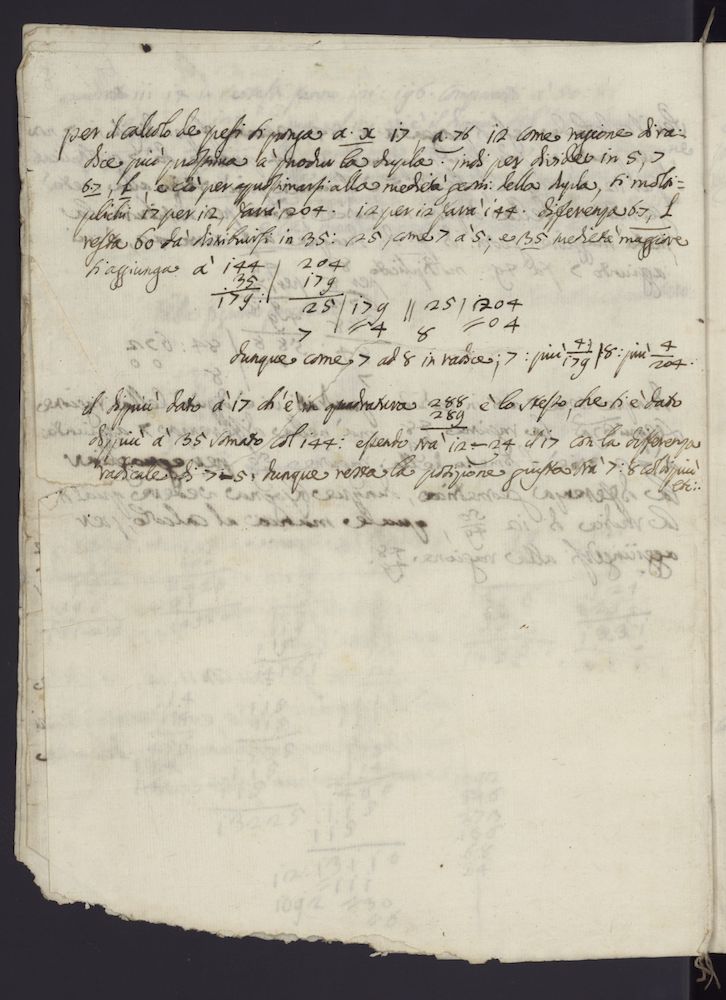 per il calcolo de pesi si ponga a . x 17 a 76 12 come ragione di ra:
dice più prossima à produr la dupla . indi per divider in 5, 7
e ciò per approssimarsi alla medietà della dupla, si molti=
plichi 17 per 12, sarà 204 . 12 per 12 sarà 144 . differenza
resta 60 da distribuirsi in 35 : 25 come 7 à 5 ; e 35 medietà maggiore
s'aggiunga à 144 204
35 179
179 : 25 / 179 // 25 / 204
7 = 4 8 = 04
dunque come 7 ad 8 in radice ; 7 : più 4/179 / 8 : più 4/204
il di più dato à 17 ch'è in quadratura 288 è lo stesso, che si è dato
289
di più à 35 sommato col 144 : essendo trà 12 - 24 il 17 con la differenza
radicale di 7 - 5 ; dunque resta la posizione giusta trà 7 : 8 col di più